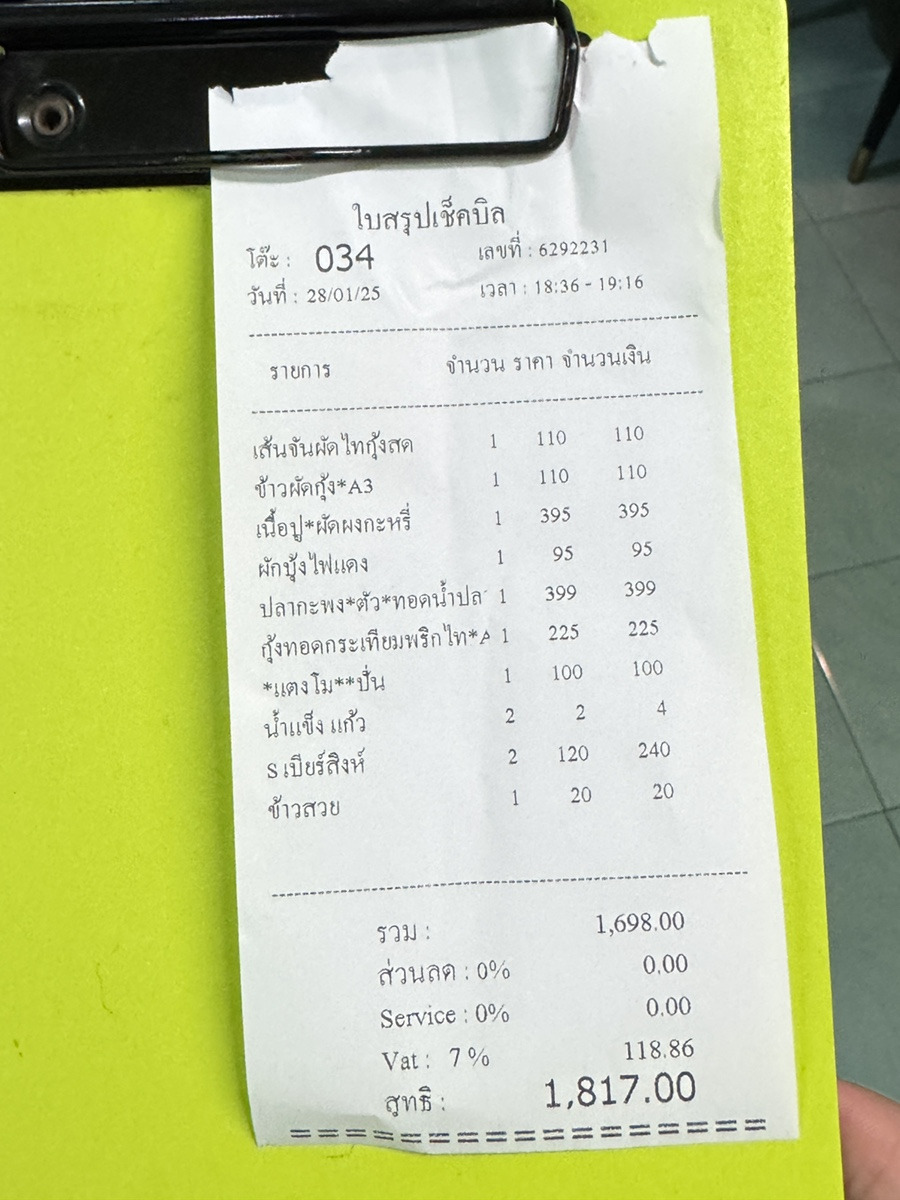 ใบสรุปเช็คบิล
โต๊ะ : 034 เลขที่ : 6292231
วันที่ : 28/01/25 เวลา : 18:36 - 19:16
รายการ จำนวน ราคา จำนวนเงิน
เส้นจันผัดไทกุ้งสด 1 110 110
ข้าวผัดกุ้ง*A3 1 110 110
เนื้อปู*ผัดผงกะหรี่ 1 395 395
ผักบุ้งไฟแดง 1 95 95
ปลากะพง*ตัว*ทอดน้ำปล 1 399 399
กุ้งทอดกระเทียมพริกไท*A 1 225 225
*แตงโม**ปั่น 1 100 100
น้ำแข็ง แก้ว 2 2 4
S เบียร์สิงห์ 2 120 240
ข้าวสวย 1 20 20
รวม : 1,698.00
ส่วนลด : 0% 0.00
Service : 0% 0.00
Vat : 7 % 118.86
สุทธิ : 1,817.00